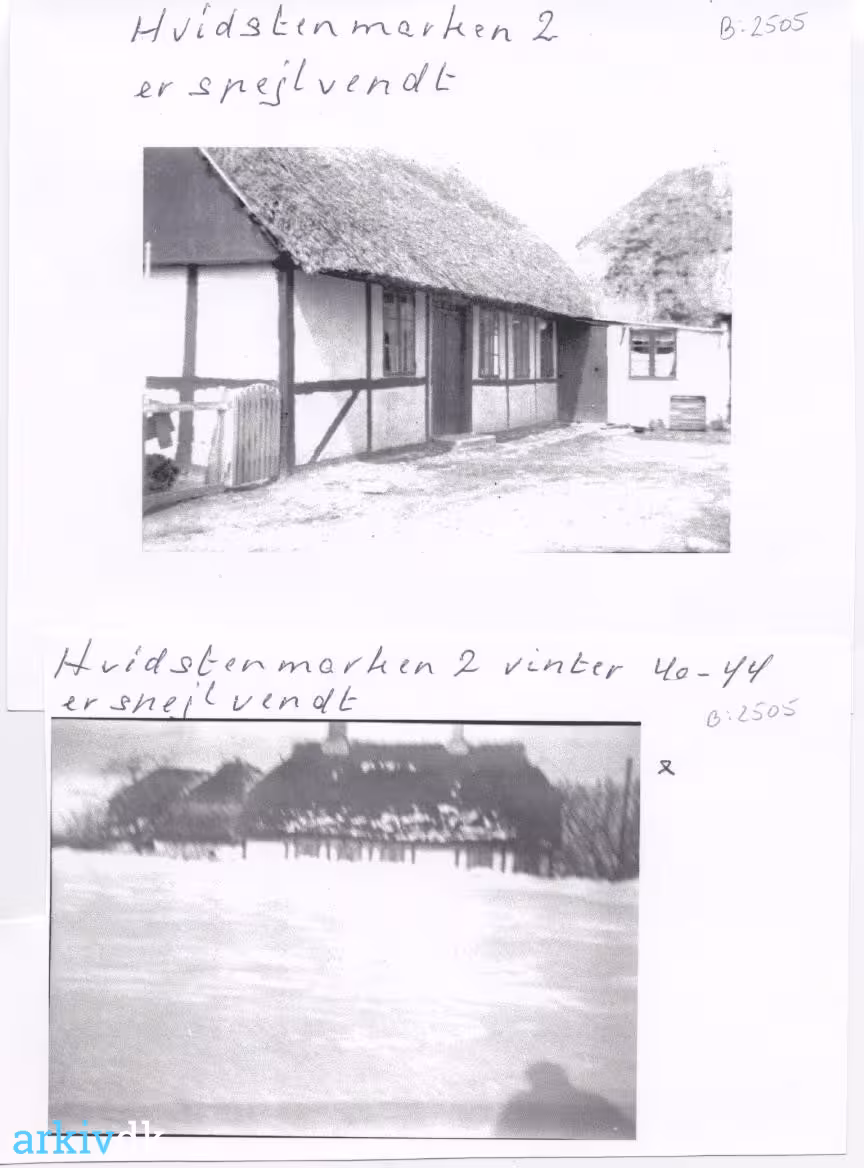 Hvidstenmarken 2
B:2505
er spejlvendt
Hvidstenmarken 2 vinter 40-44
er spejlvendt
B:2505
arkiv.dk